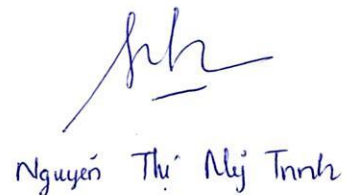 Nguyễn Thị Mỹ Trinh